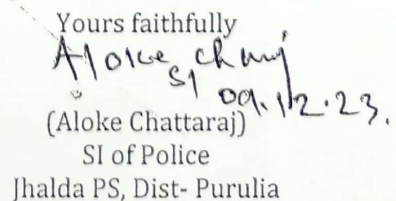 Yours faithfully
Aloke Chaṭṭ
SI
09.12.23.
(Aloke Chattaraj)
SI of Police
Jhalda PS, Dist- Purulia